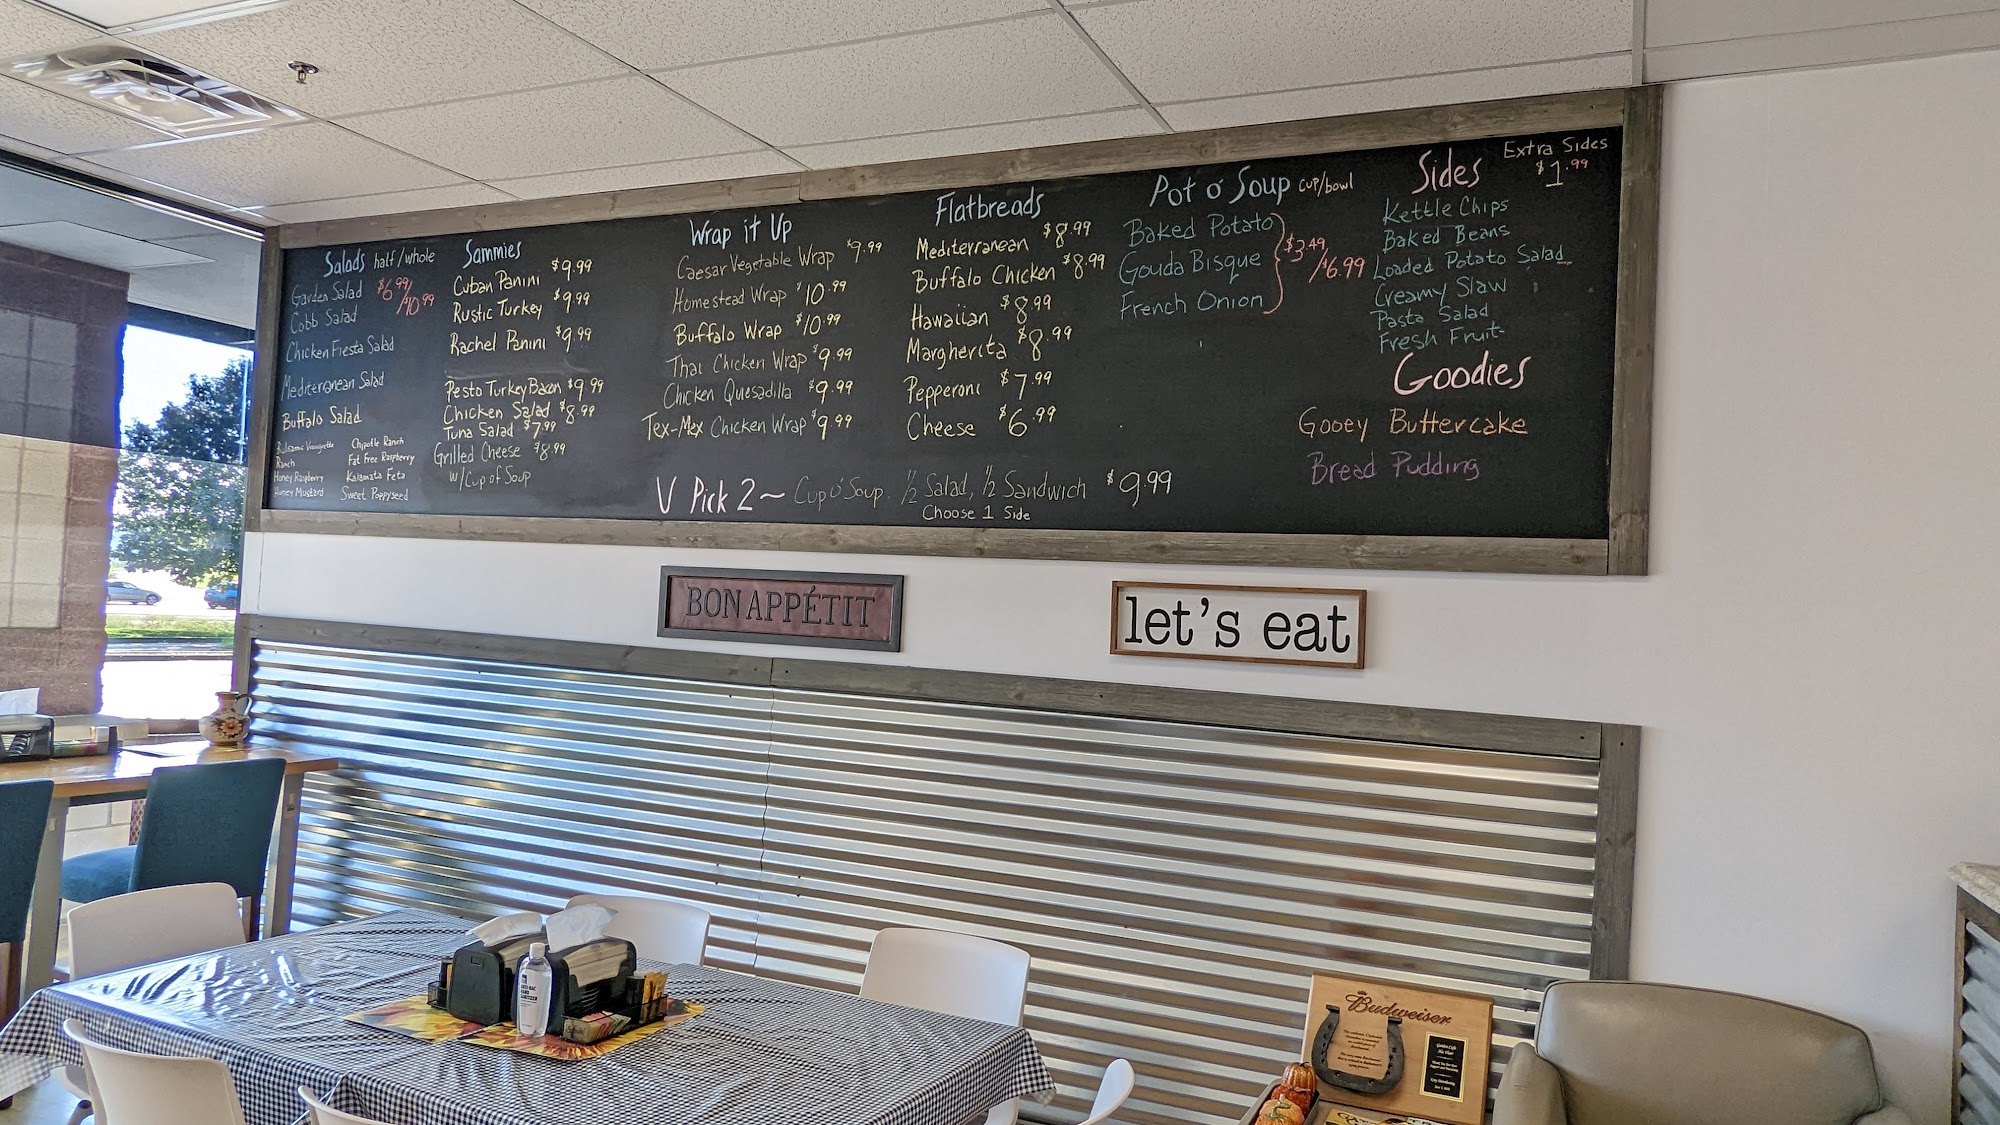 Salads half/whole
Garden Salad $6.99/$10.99
Cobb Salad
Chicken Fiesta Salad
Mediterranean Salad
Buffalo Salad
Balsamic Vinaigrette
Ranch
Honey Raspberry
Honey Mustard
Chipotle Ranch
Fat Free Raspberry
Kalamata Feta
Sweet Poppyseed
Sammies
Cuban Panini $9.99
Rustic Turkey $9.99
Rachel Panini $9.99
Pesto Turkey Bacon $9.99
Chicken Salad $8.99
Tuna Salad $7.99
Grilled Cheese $8.99
w/Cup of Soup
Wrap it Up
Caesar Vegetable Wrap $9.99
Homestead Wrap $10.99
Buffalo Wrap $10.99
Thai Chicken Wrap $9.99
Chicken Quesadilla $9.99
Tex-Mex Chicken Wrap $9.99
Flatbreads
Mediterranean $8.99
Buffalo Chicken $8.99
Hawaiian $8.99
Margherita $8.99
Pepperoni $7.99
Cheese $6.99
Pot o' Soup cup/bowl
Baked Potato
Gouda Bisque
French Onion
$3.49/$6.99
Sides
Extra Sides
$1.99
Kettle Chips
Baked Beans
Loaded Potato Salad
Creamy Slaw
Pasta Salad
Fresh Fruit
Goodies
Gooey Buttercake
Bread Pudding
V Pick 2~ Cup o' Soup, ½ Salad, ½ Sandwich $9.99
Choose 1 Side
BON APPÉTIT
let's eat
Budweiser